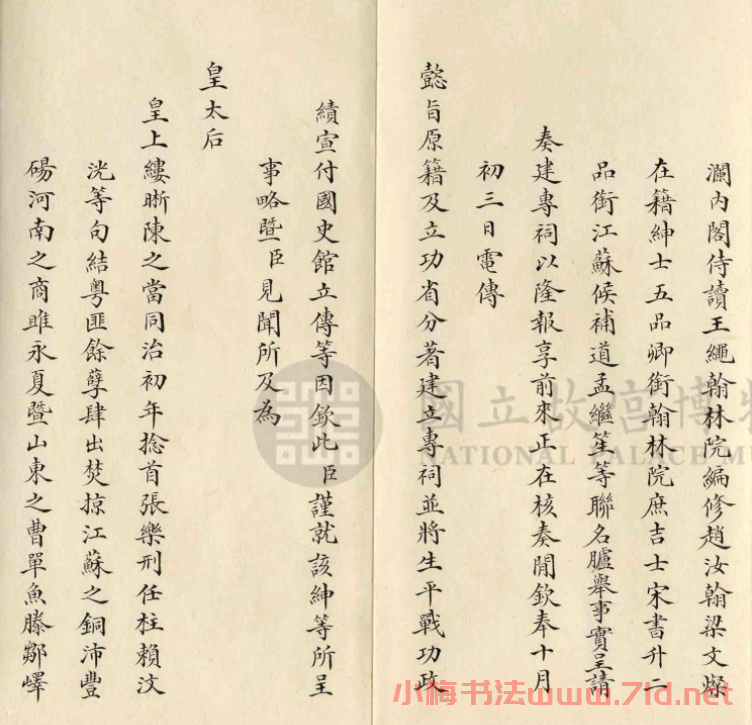 瀾內閣侍讀王繩翰林院編修趙汝翰梁文燦
在籍紳士五品卿銜翰林院庶吉士宋書升二
品銜江蘇候補道孟繼笙等聯名臚舉事實呈請
奏建專祠以隆報享前來正在核奏閒欽奉十月
初三日電傳
懿旨原籍及立功省分著建立專祠並將生平戰功政
績宣付國史館立傳等因欽此臣謹就該紳等所呈
事略暨臣見聞所及為
皇太后
皇上縷晰陳之當同治初年捻首張樂刑任柱賴汶
洸等句結粵匪餘孽肆出焚掠江蘇之銅沛豐
碭河南之商雎永夏暨山東之曹單魚滕鄒嶧
國立故宮博物
NATIONAL PALACE MU
小梅书法www.71d.net